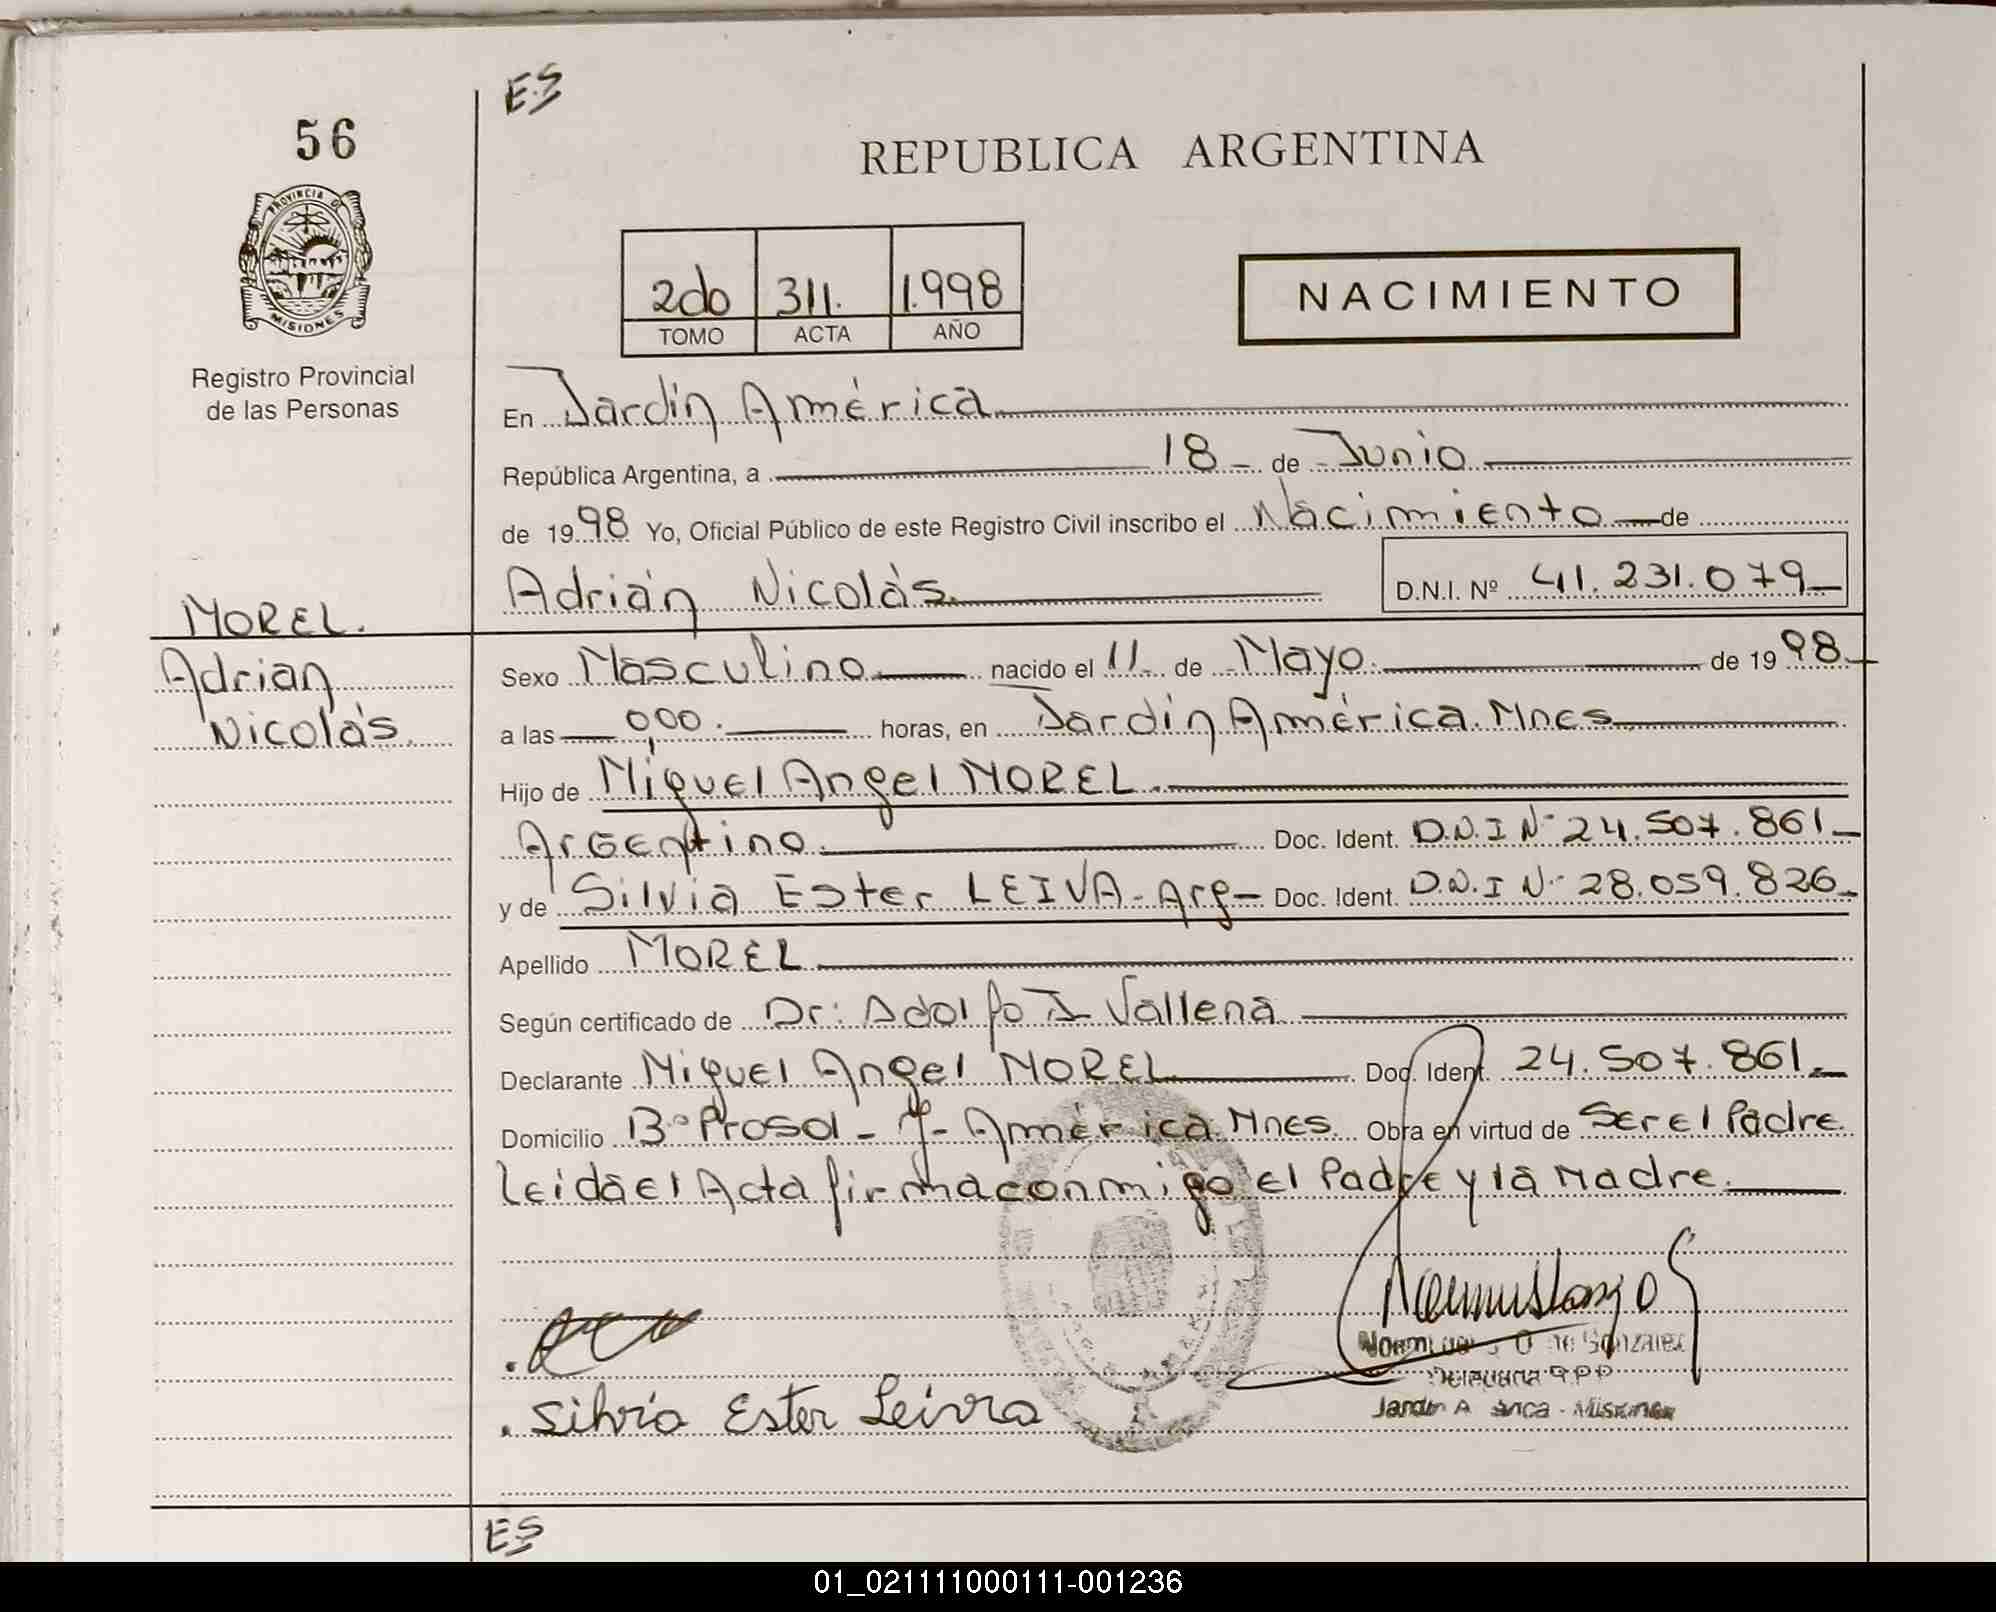 ES
56
REPUBLICA ARGENTINA
PROVINCIA DE
MISIONES
2do 311. 1.998
TOMO ACTA AÑO
NACIMIENTO
Registro Provincial
de las Personas
En Jardín América
República Argentina, a 18 - de Junio
de 1998 Yo, Oficial Público de este Registro Civil inscribo el Nacimiento de
Adrián Nicolás. D.N.I. Nº 41.231.079
MOREL.
Adrian
Nicolás.
Sexo Masculino nacido el 11 de Mayo. de 1998.
a las 0,00. horas, en Jardín América. Mnes
Hijo de Miguel Angel MOREL.
Argentino. Doc. Ident. D.N.I Nº 24.507.861
y de Silvia Ester LEIVA - Arg - Doc. Ident. D.N.I Nº 28.059.826
Apellido MOREL
Según certificado de Dr: Adolfo I Vallena
Declarante Miguel Angel MOREL Doc. Ident. 24.507.861
Domicilio Bº Prosol - J - América. Mnes. Obra en virtud de Ser el Padre
Leida el Acta firma conmigo el Padre y la Madre.
de Gonzalez
Jardin - Misiones
Silvia Ester Leivra
ES
01_021111000111-001236